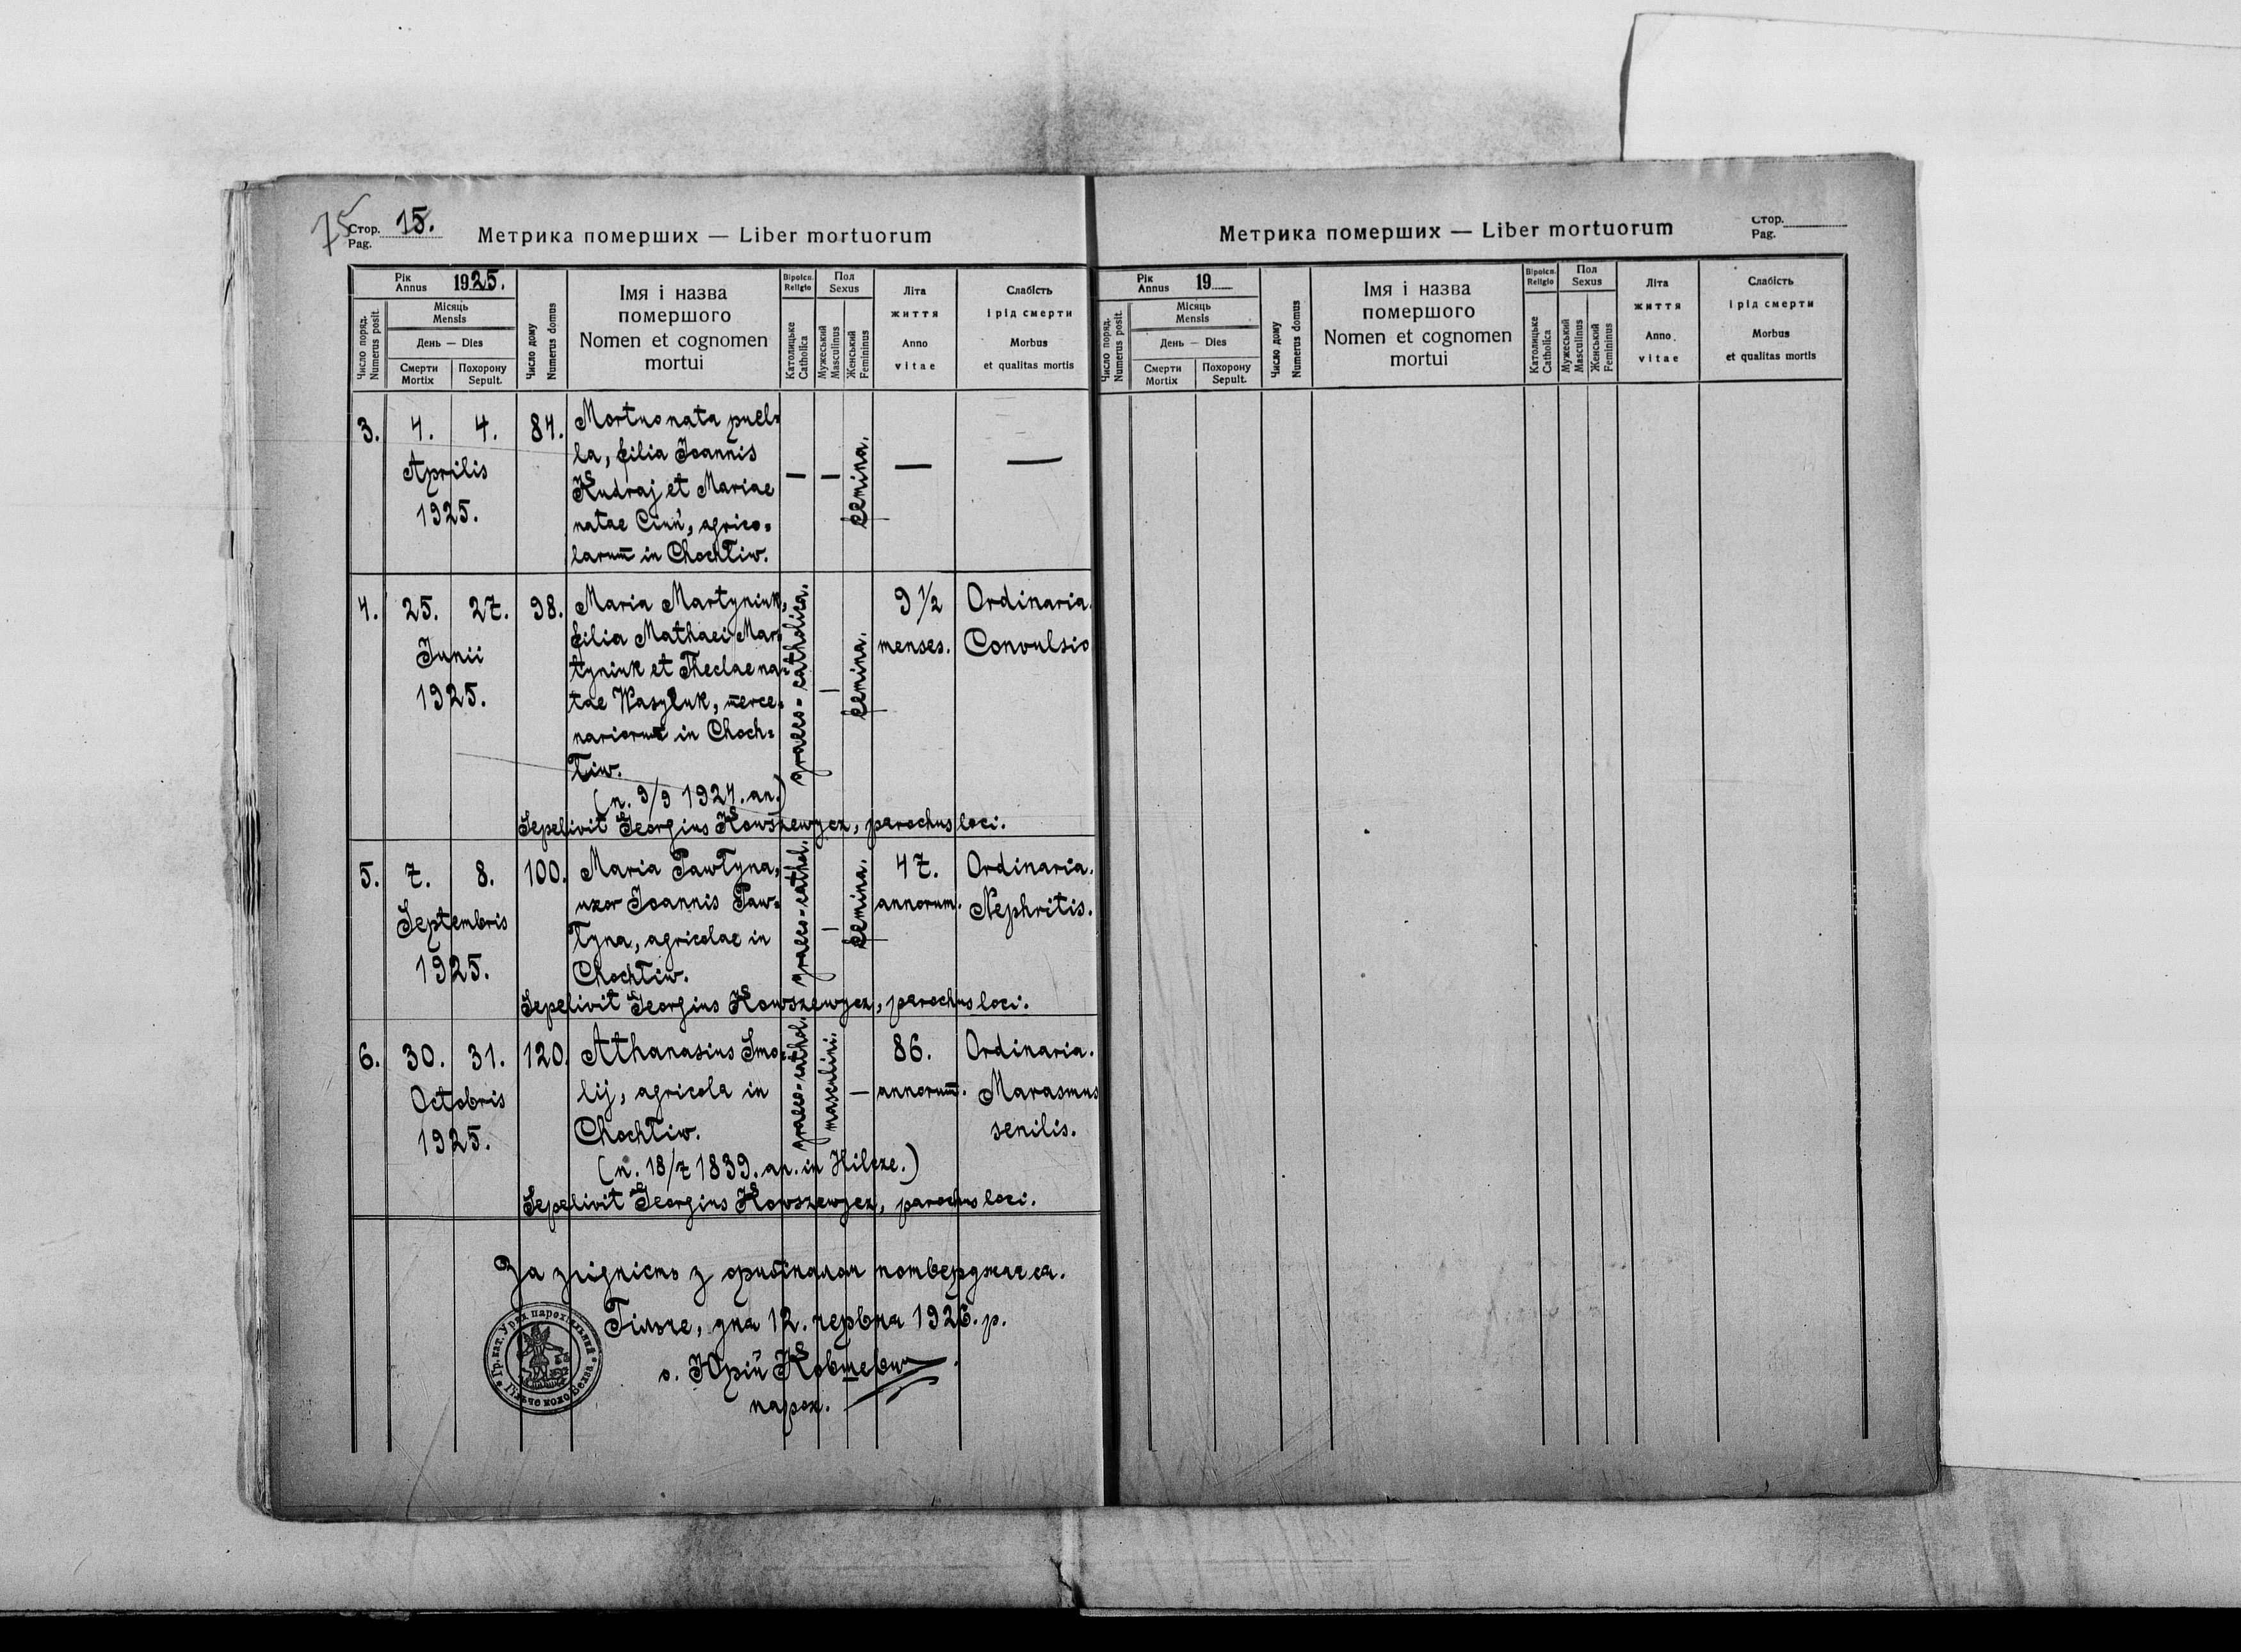 75
Стор. 15.
Pag.
Метрика померших — Liber mortuorum
Рік
Annus 1925.
Число поряд.
Numerus posit.
Місяць
Mensis
День — Dies
Смерти
Mortix
Похорону
Sepult.
Число дому
Numerus domus
Імя і назва
помершого
Nomen et cognomen
mortui
Віроісп.
Religio
Католицьке
Catholica
Пол
Sexus
Мужеський
Masculinus
Женський
Femininus
Літа
життя
Anno
vitae
Слабість
і рід смерти
Morbus
et qualitas mortis
3. 4. 4. 84. Mortuonata puel=
la, filia Joannis
Aprilis Kudraj et Mariae — — femina. — —
1925. natae Ciuń, agrico=
larum in Chochtiw.
4. 25. 27. 98. Maria Martyniuk, graeco=catholica. — femina. 9 1/2 Ordinaria.
Junii filia Mathaei Mar= menses. Convulsio
tyniuk et Theclae na=
1925. tae Wasyluk, merce=
nariorum in Choch=
tiw.
(n. 9/9 1924. an.)
Sepelivit Georgius Kowszewycz, parochus loci.
5. 7. 8. 100. Maria Pawtyna, graeco=cathol. — femina. 47. Ordinaria.
uxor Joannis Paw= annorum. Nephritis.
Septembris tyna, agricolae in
1925. Chochtiw.
Sepelivit Georgius Kowszewycz, parochus loci.
6. 30. 31. 120. Athanasius Smo= graeco=cathol. masculini. — 86. Ordinaria.
Octobris lij, agricola in annorum. Marasmus
1925. Chochtiw. senilis.
(n. 18/7 1839. an. in Hilcze.)
Sepelivit Georgius Kowszewycz, parochus loci.
За згідність з оригіналом потверджаєся.
Гільче, дня 12. червня 1926. р.
о. Юрій Ковшевич
парох.
Гр. кат. Уряд парохіяльний
Гільче коло Белза
Метрика померших — Liber mortuorum
Стор.
Pag.
Рік
Annus 19
Число поряд.
Numerus posit.
Місяць
Mensis
День — Dies
Смерти
Mortix
Похорону
Sepult.
Число дому
Numerus domus
Імя і назва
помершого
Nomen et cognomen
mortui
Віроісп.
Religio
Католицьке
Catholica
Пол
Sexus
Мужеський
Masculinus
Женський
Femininus
Літа
життя
Anno
vitae
Слабість
і рід смерти
Morbus
et qualitas mortis